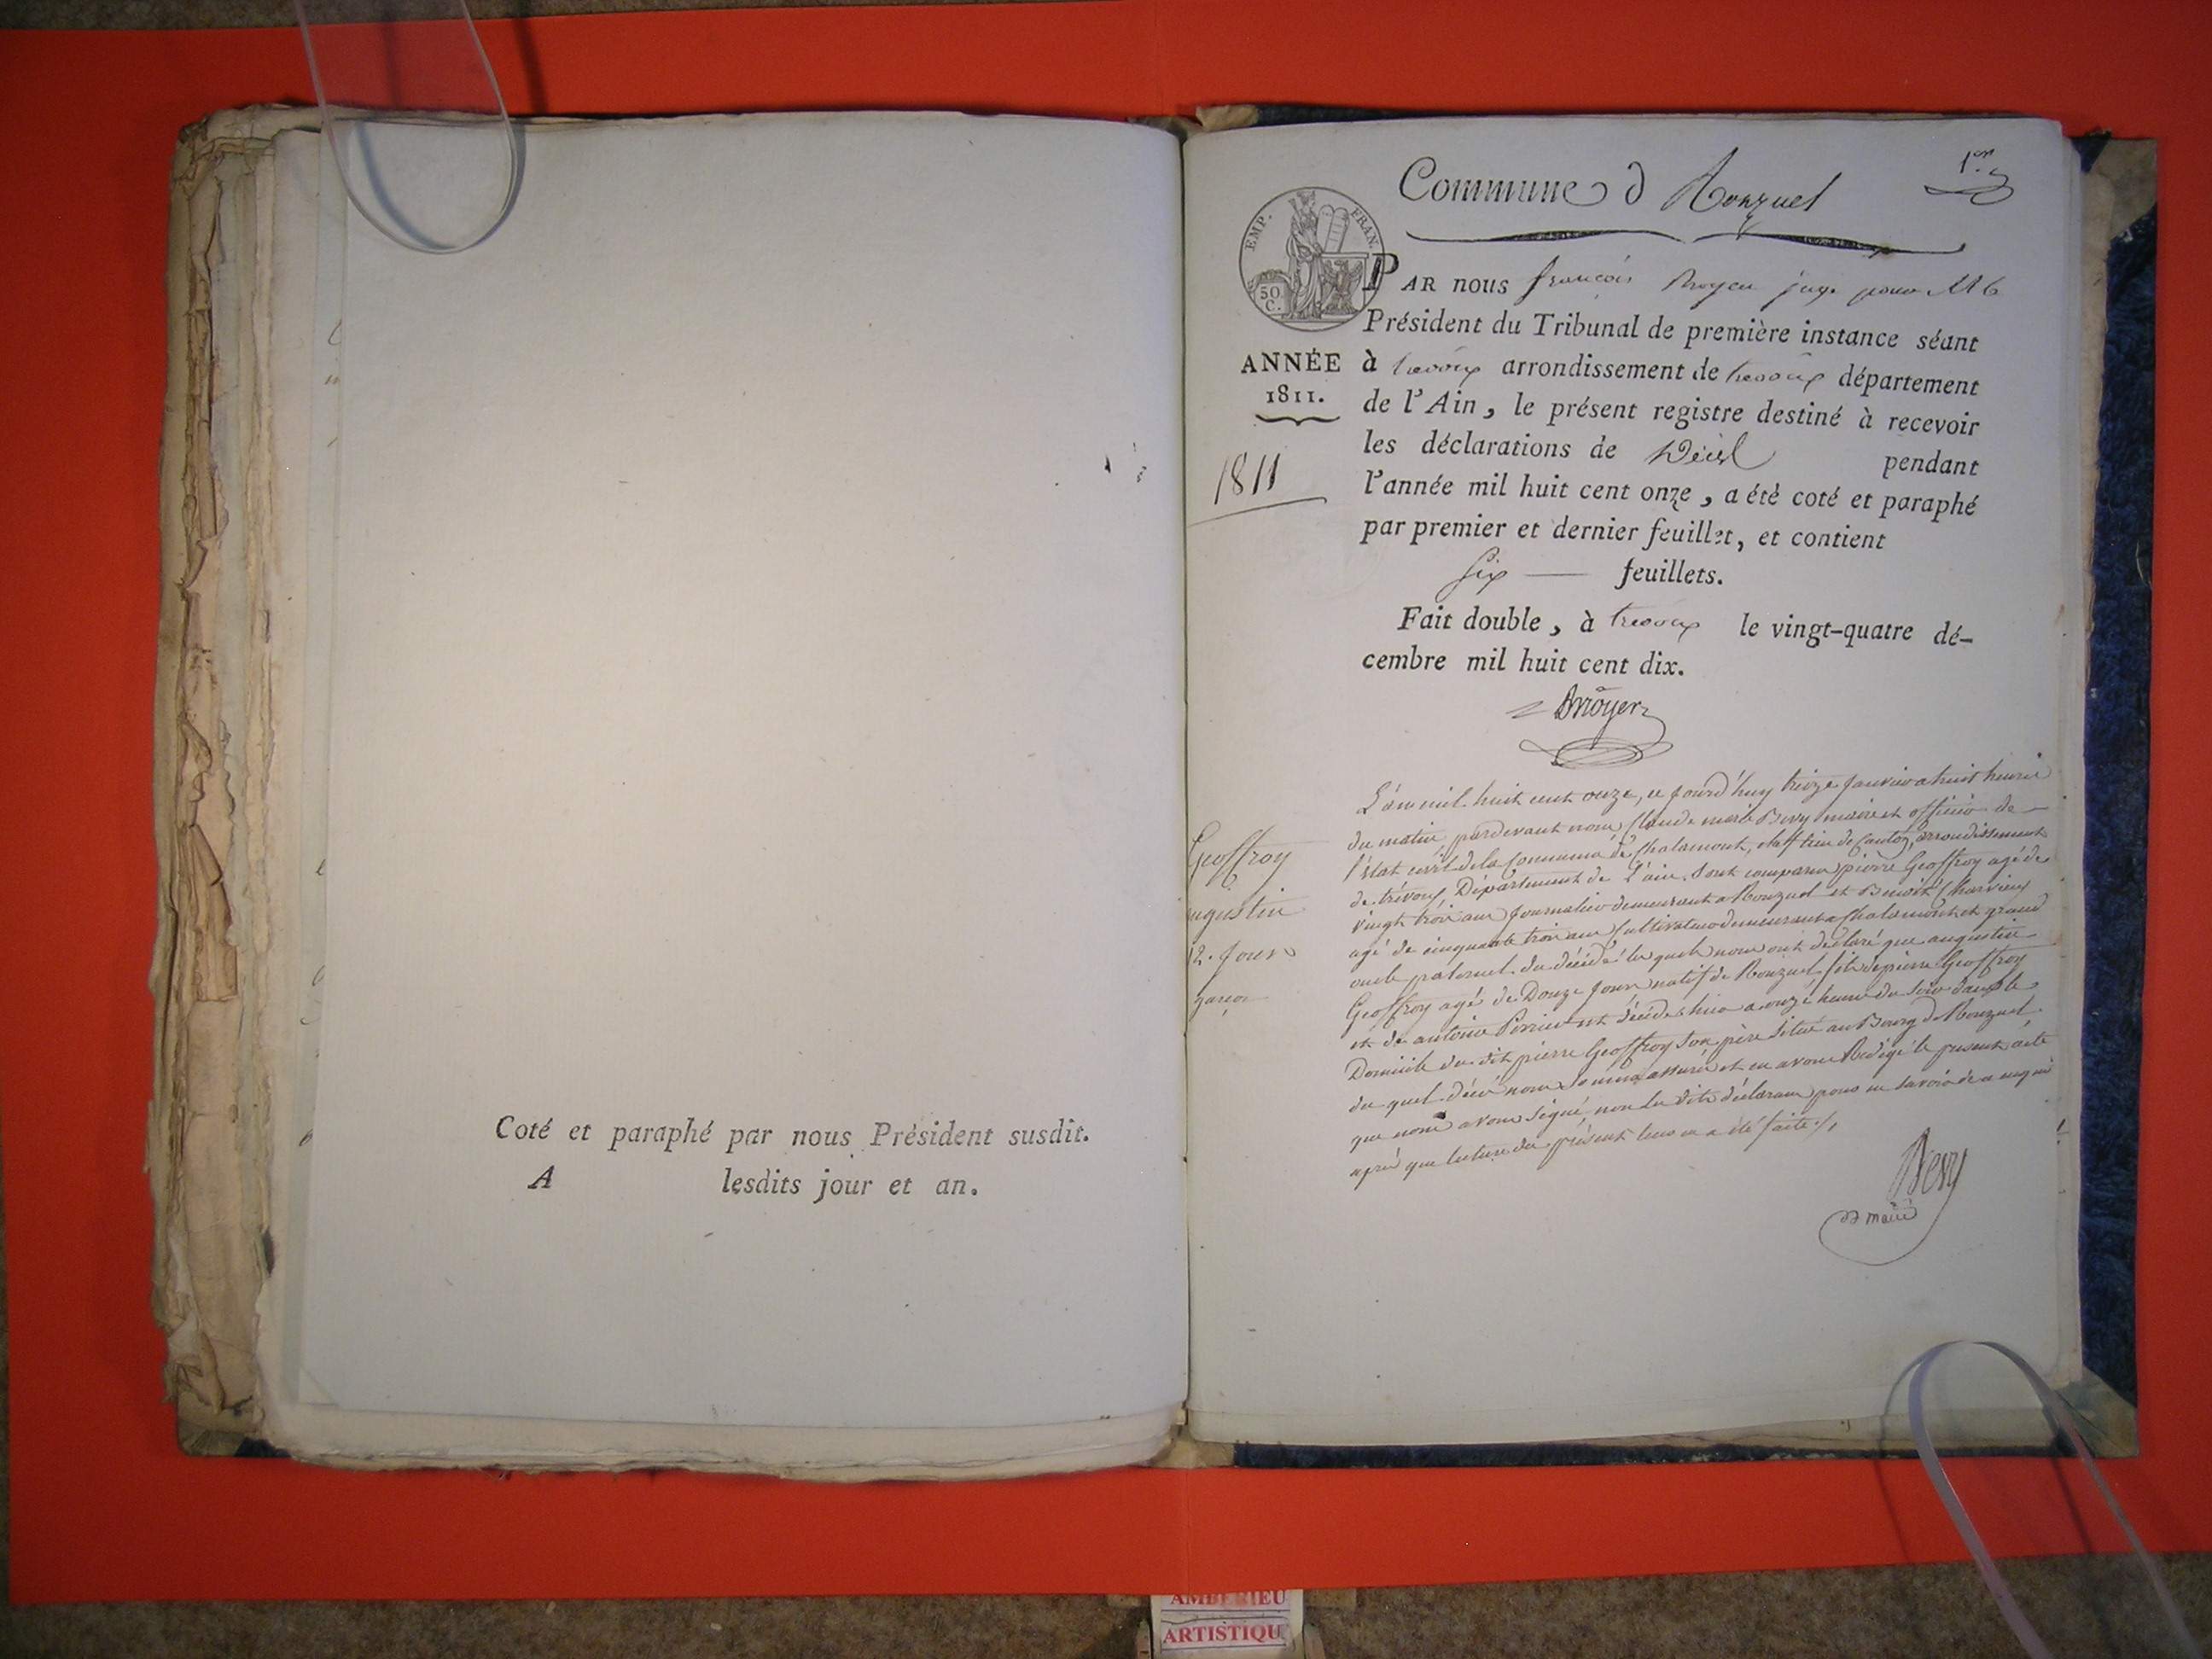 Coté et paraphé par nous Président susdit.
A lesdits jour et an.
Commune d Ronzuel
1er
EMP. FRAN.
50
C.
PAR nous françois juge pour
Président du Tribunal de première instance séant
ANNÉE
1811.
à trevoux arrondissement de trevoux département
de l'Ain, le présent registre destiné à recevoir
les déclarations de Décès pendant
1811
l'année mil huit cent onze, a été coté et paraphé
par premier et dernier feuillet, et contient
six feuillets.
Fait double, à trevoux le vingt-quatre dé-
cembre mil huit cent dix.
Geoffroy
ugustin
12. jours
garçon
L'an mil huit cent onze, ce jourd'huy treize janvier a huit heures
du matin, pardevant nous Claude marie Bevy maire et officier de
l'état civil de la Commune de Chalamont, chef lieu de Canton, arrondissement
de trévoux Département de L'ain. Sont comparu pierre Geoffroy agé de
vingt trois ans journalier demeurant a Ronzuel et Benoit Charvieux
agé de cinquante trois ans Cultivateur demeurant a Chalamont et grand
oncle paternel du décédé les quels nous ont déclaré que augustin
Geoffroy agé de Douze jours natif de Ronzuel fils de pierre Geoffroy
et de antoine est décédé hier a onze heures du soir dans le
Domicile du dit pierre Geoffroy son père situé au Bourg de Ronzuel
du quel décè nous sommes assuré et en avons Rédigé le present acte
que nous avons signé, non les dits déclarans pour ne savoir de ce enquis
après que lecture du présent leurs en a été faite ./.
Bevy
maire
AMBERIEU
ARTISTIQU